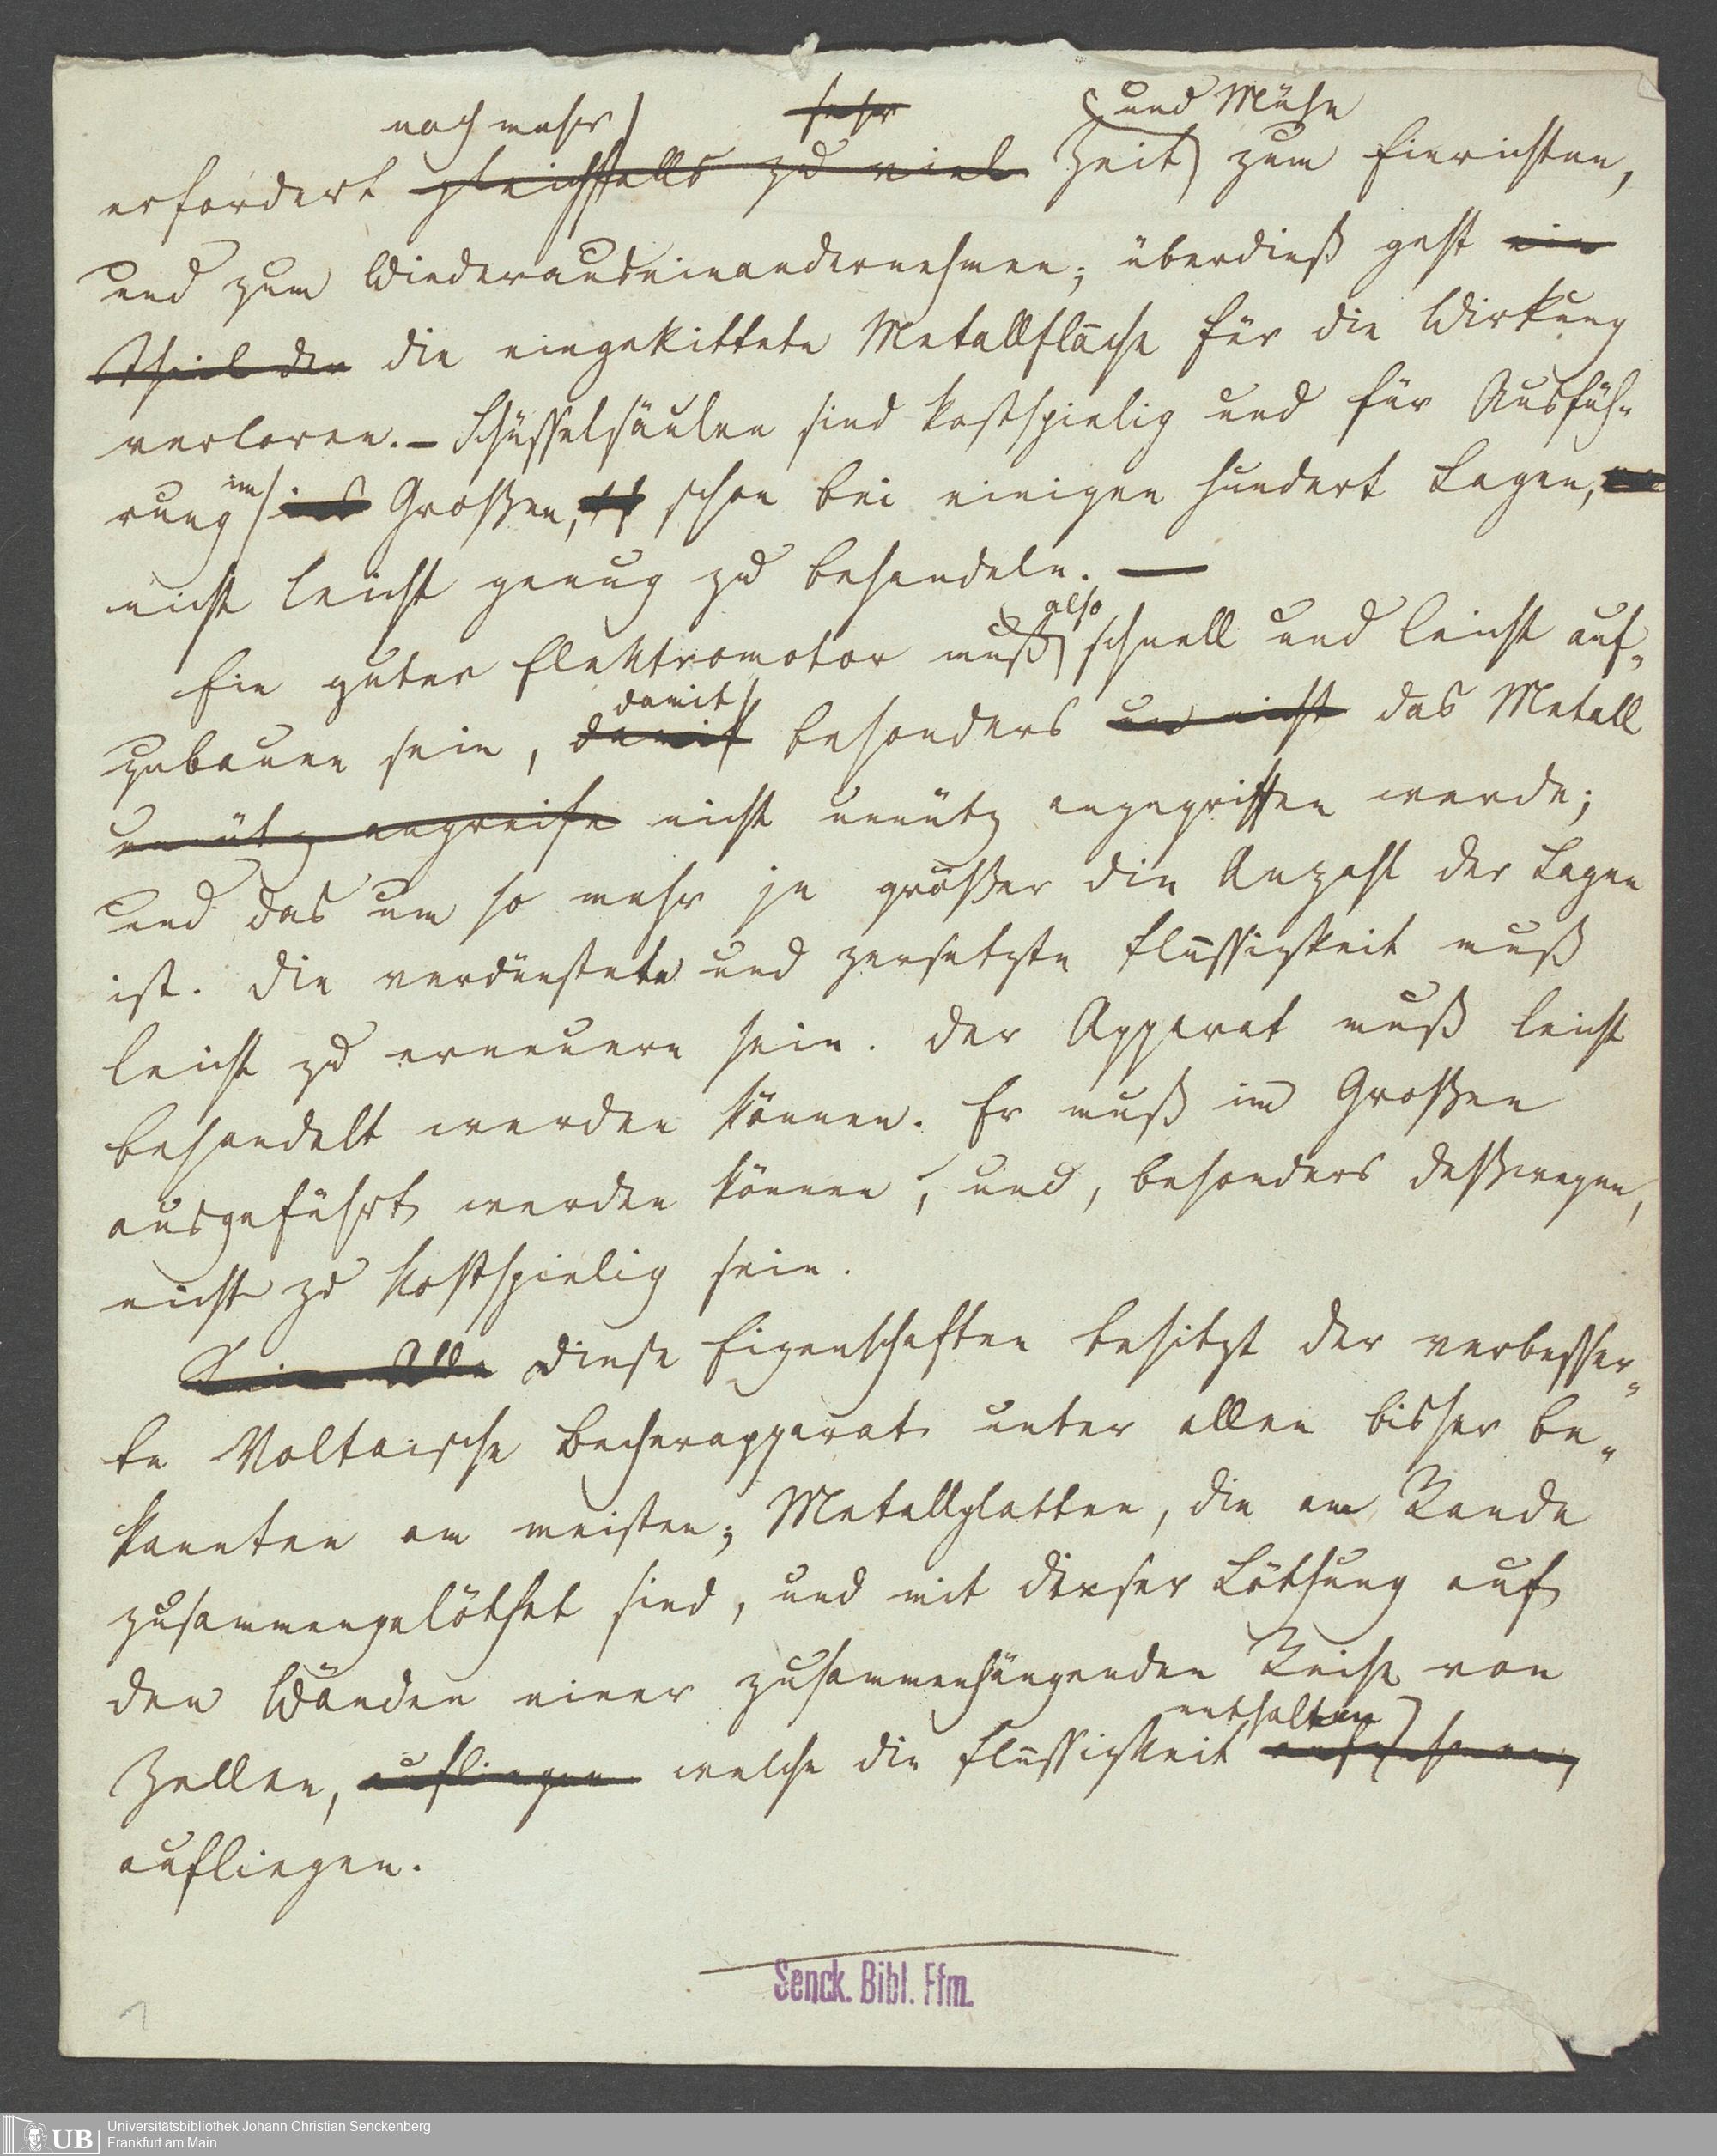 noch mehr sehr und Mühe
erfordert gleichfalls zu viel Zeit zum Einrichten,
und zum Wiederauseinandernehmen; überdieß geht ein
Theil der die eingekittete Metallfläche für die Wirkung
verloren. – Schüsselsäulen sind kostspielig und für Ausfüh-
rung im ins Großen, schon bei einigen hundert Lagen,
nicht leicht genug zu behandeln. —
also
Ein guter Elektromotor muß schnell und leicht auf-
damit
zubauen sein, damit besonders un nicht das Metall
unnütz angreife nicht unnütz angegriffen werde;
und das um so mehr je größer die Anzahl der Lagen
ist. Die verdünstete und zersetzte Flüssigkeit muß
leicht zu erneuern sein. Der Apparat muß leicht
behandelt werden können. Er muß im Großen
ausgeführt werden können, und, besonders deßwegen,
nicht zu kostspielig sein.
Alle Diese Eigenschaften besitzt der verbesser-
te Voltaische Becherapparat unter allen bisher be-
kannten am meisten; Metallplatten, die am Rande
zusammengelöthet sind, und mit dieser Löthung auf
den Wänden einer zusammenhängenden Reihe von
enthalten
Zellen, aufliegen welche die Flüssigkeit aufnehmen,
aufliegen.
Senck. Bibl. Ffm.
1
UB
Universitätsbibliothek Johann Christian Senckenberg
Frankfurt am Main